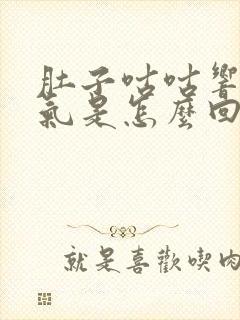 肚子咕咕響
氣是怎麼回
就是喜歡喫肉